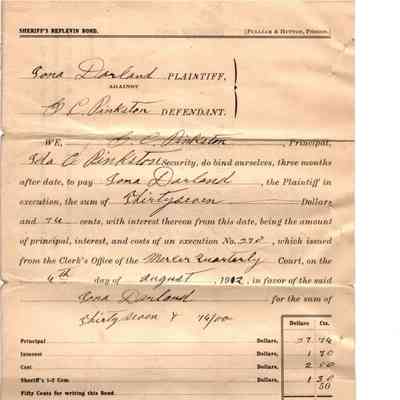 SHERIFF'S REPLEVIN BOND. [PULLIAM & HUTTON, PRINTERS.
Iona Dorland PLAINTIFF,
AGAINST
C C Pinkston DEFENDANT.
WE, C. C. Pinkston, Principal,
Ida C Pinkston Security, do bind ourselves, three months
after date, to pay Iona Dorland, the Plaintiff in
execution, the sum of Thirtyseven Dollars
and 74 cents, with interest thereon from this date, being the amount
of principal, interest, and costs of an execution No. 270, which issued
from the Clerk's Office of the Mercer Quarterly Court, on the
6th day of August, 1912, in favor of the said
Iona Dorland for the sum of
Thirty seven & 74/00
Dollars Cts.
Principal Dollars, 37 74
Interest Dollars, 1 70
Cost Dollars, 2 50
Sheriff's 1-2 Com. Dollars, 1 30
Fifty Cents for writing this Bond. 50